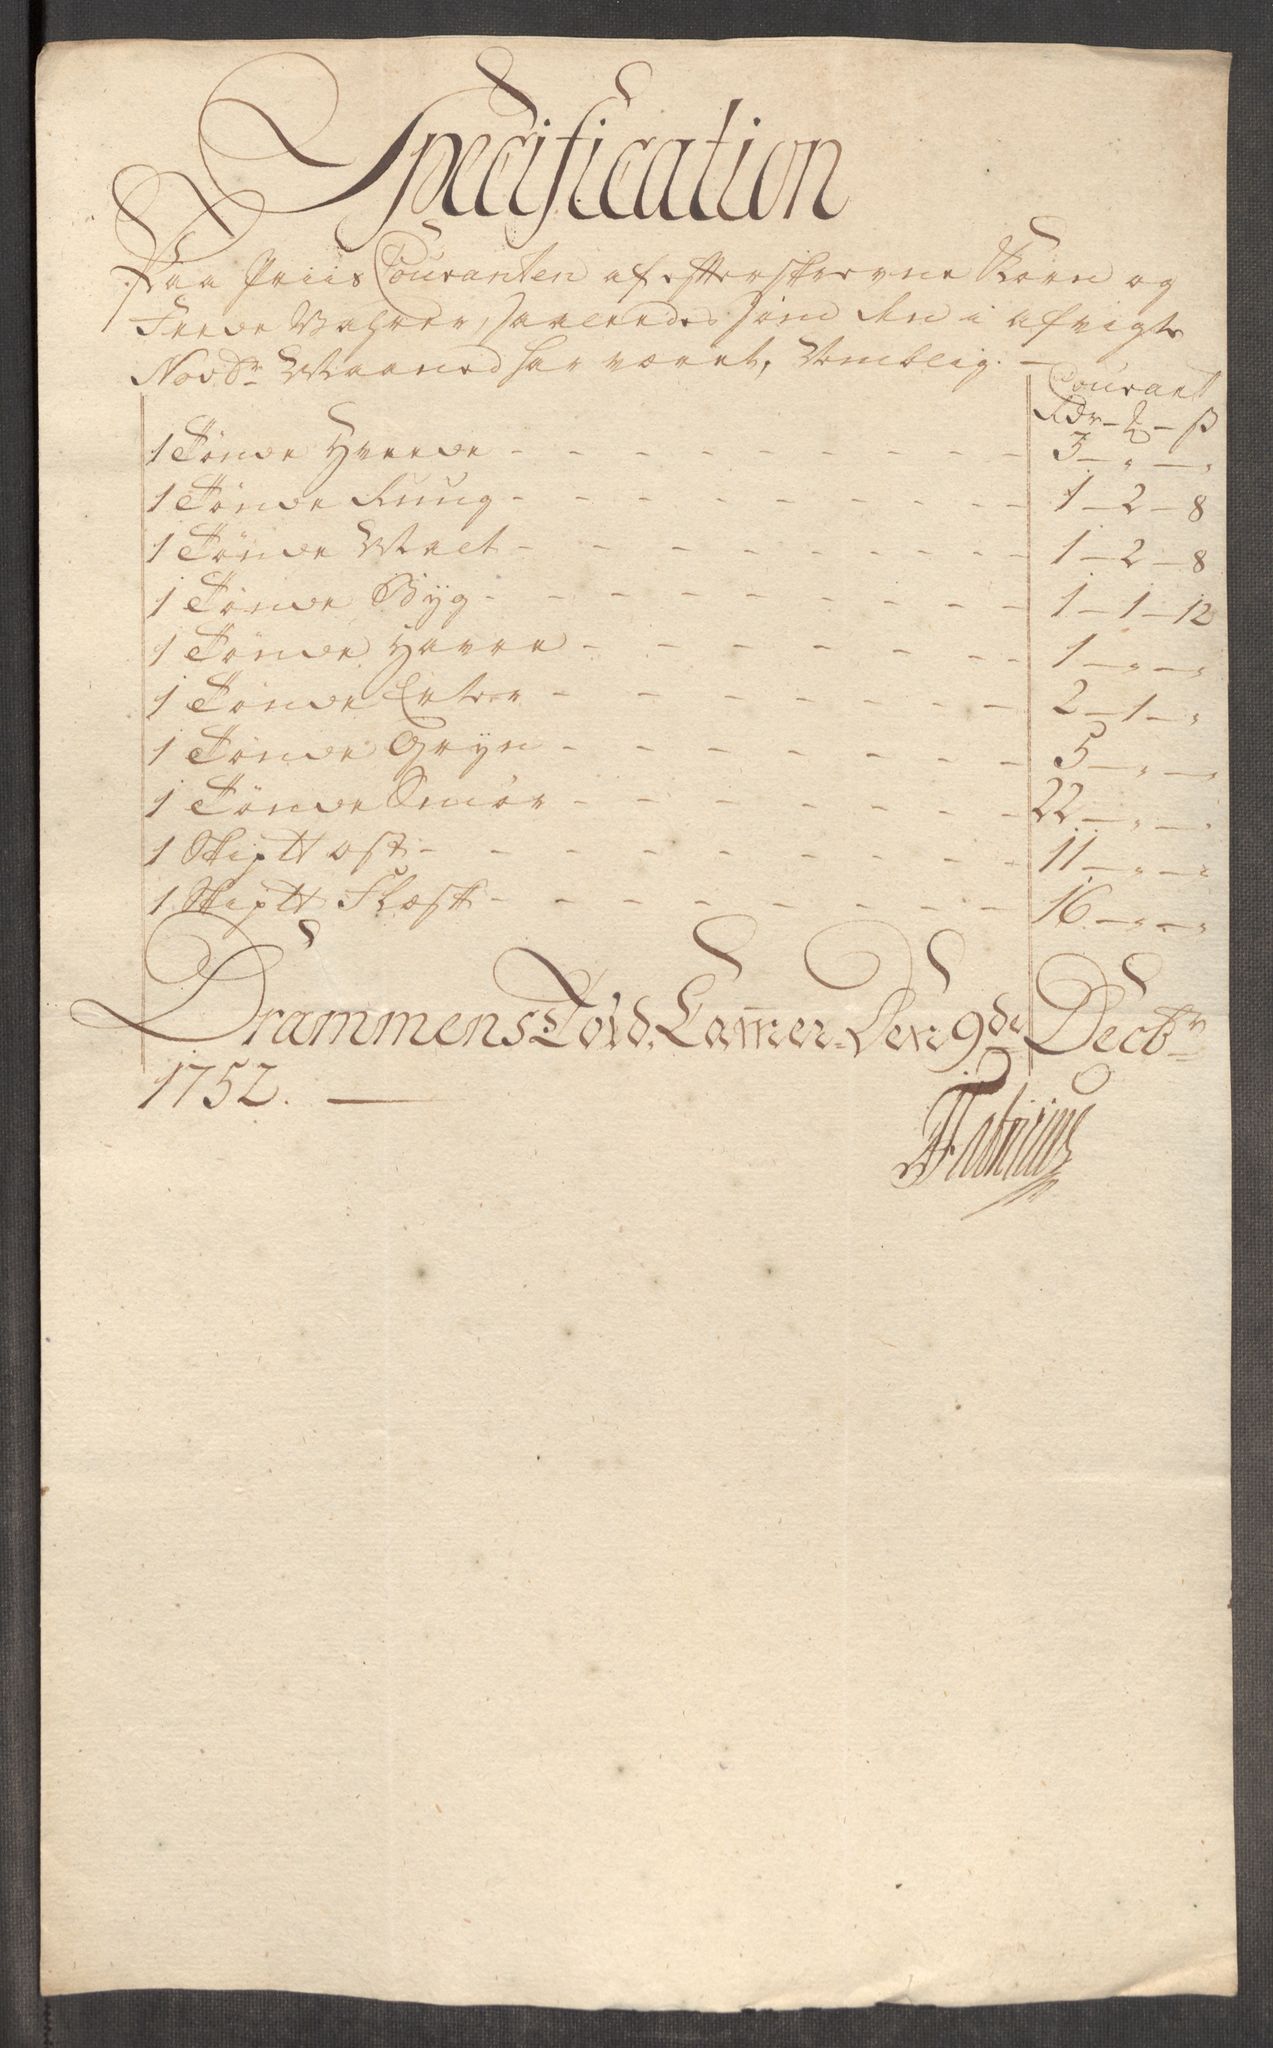 Specification
Paa Priis Couranten af efterskrevne Korn og
Feede Vahrer, saaleedes som den i afvigte
Novbr Maaned har været, Nemblig. —
Courant
Rdr — ⅔ — ß
1 Tønde Hveede - - - - - - - - 3 — „ — „
1 Tønde Rug - - - - - - - - 1 — 2 — 8
1 Tønde Malt - - - - - - - - 1 — 2 — 8
1 Tønde Byg - - - - - - - - 1 — 1 — 12
1 Tønde Havre - - - - - - - - 1 — „ — „
1 Tønde Erter - - - - - - - - 2 — 1 — „
1 Tønde Gryn - - - - - - - - 5 — „ — „
1 Tønde Smør - - - - - - - - 22 — „ — „
1 Skiptt ost - - - - - - - - 11 — „ — „
1 Skiptt Flæsk - - - - - - - - 16 — „ — „
Drammens Told Camer Den 9de Decbr
1752. —